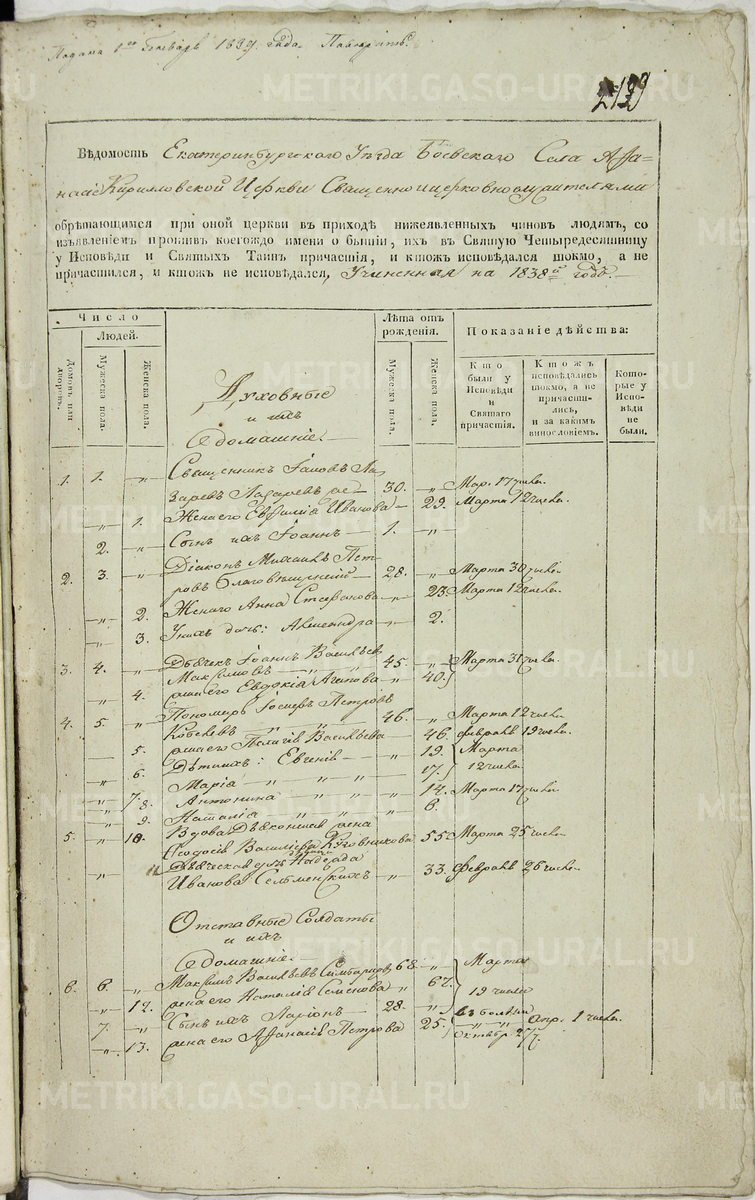 Подана 1го Генваря 1839 года.
2139
Вѣдомость Екатеринбургскаго Уѣзда Боевскаго Села Афа=
насіе Кирилловской Церкви Священно и церковнослужителями
обрѣтающимся при оной церкви въ приходѣ нижеявленныхъ чиновъ людямъ, со
изъявленіемъ противъ коегождо имени о бытіи, ихъ въ Святую Четыредесятницу
у Исповѣди и Святыхъ Таинъ причастія, и ктожъ исповѣдался токмо, а не
причастился, и ктожъ не исповѣдался, Учиненная на 1838й годъ.
Число Лѣта отъ рожденія. Показаніе дѣйства:
Людей.
Домовъ или дворовъ. Мужеска пола. Женска пола. Мужеска пола. Женска пола. Кто были у Исповѣди и Святаго причастія. Ктожъ исповѣдались токмо, а не причастились, и за какимъ винословіемъ. Которые у Исповѣди не были.
Духовные
и ихъ
Домашніе.
1. 1. „ Священникъ Іаковъ Ла-
заревъ Лазаревъ 30. „ Мар. 17 числа
„ 1. Жена его Евфимія Иванова 29. Марта 12 числа.
2. „ Сынъ ихъ Іоаннъ 1. „
2. 3. „ Діаконъ Михаилъ Пет-
ровъ Благовѣщенскій 28. „ Марта 30 числа
„ 2. Жена его Анна Стефанова „ 23. Марта 12 числа.
„ 3. У нихъ дочь: Александра „ 2.
3. 4. „ Дьячекъ Іоаннъ Васильевъ
Максимовъ 45. „ Марта 31 числа
„ 4. жена его Евдокія „ 40.
4. 5. „ Пономарь Іосифъ Петровъ
46. „ Марта 12 числа
„ 5. жена его Пелагія Васильева „ 46. Февраля 19 числа.
„ 6. Дѣти ихъ: Евгенія „ 19. Марта
„ 7. Марія „ „ „ 17. 12 числа
„ 8. Антонина „ „ „ 14. Марта 17 числа
„ 9. Наталія „ „ „ 8.
5. „ 10. Вдова Дьяконская жена
Феодосія Васильева 55. Марта 25 числа
„ 11 Дьяческая дочь Надежда
Иванова 33. Февраля 26 числа.
Отставные Солдаты
и ихъ
Домашніе.
6. 6. „ Максимъ Васильевъ 68. „ Марта
„ 12. жена его Наталія Семенова „ 67. 19 числа
7. „ Сынъ ихъ Ларіонъ 28. „ въ болѣзни
„ 13. жена его Афанасія Петрова 25. Апр. 1 числа.
Октябр. 27.
METRIKI.GASO-URAL.RU